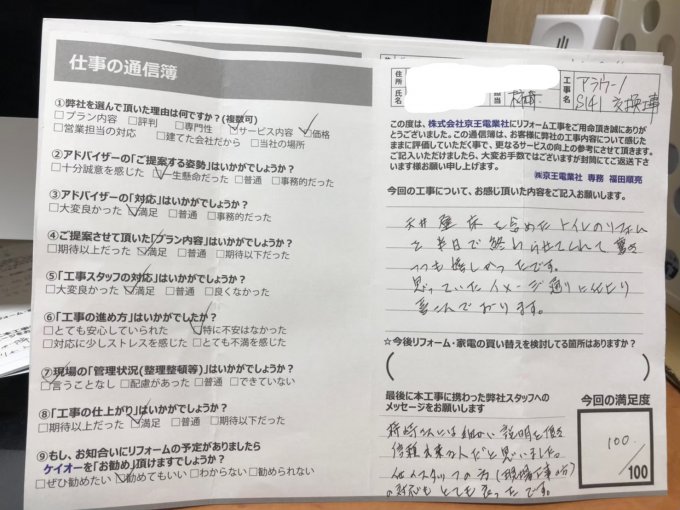 仕事の通信簿
①弊社を選んで頂いた理由は何ですか?(複数可)
□プラン内容 □評判 □専門性 ☑サービス内容 ☑価格
□営業担当の対応 □建てた会社だから □当社の場所
②アドバイザーの「ご提案する姿勢」はいかがでしょうか?
□十分誠意を感じた ☑一生懸命だった □普通 □事務的だった
③アドバイザーの「対応」はいかがでしょうか?
□大変良かった ☑満足 □普通 □事務的だった
④ご提案させて頂いた「プラン内容」はいかがでしょうか?
□期待以上だった ☑満足 □普通 □期待以下だった
⑤「工事スタッフの対応」はいかがでしょうか?
□大変良かった ☑満足 □普通 □良くなかった
⑥「工事の進め方」はいかがでしたか?
□とても安心していられた ☑特に不安はなかった
□対応に少しストレスを感じた □とても不満を感じた
⑦現場の「管理状況(整理整頓等)」はいかがでしょうか?
☑言うことなし □配慮があった □普通 □できていない
⑧「工事の仕上がり」はいかがでしょうか?
□期待以上だった ☑満足 □普通 □期待以下だった
⑨もし、お知合いにリフォームの予定がありましたら
ケイオーを「お勧め」頂けますでしょうか?
□ぜひ勧めたい ☑勧めてもいい □わからない □勧められない
住所
氏名
担当
様
工事名
アラウーノ
S141 交換工事
この度は、株式会社京王電業社にリフォーム工事をご用命頂き誠にありが
とうございました。この通信簿は、お客様に弊社の工事内容について感じた
ままに評価していただく事で、更なるサービスの向上の参考にさせて頂きます。
ご記入いただけましたら、大変お手数ではございますが封筒にてご返送下さ
います様お願い申し上げます。
㈱京王電業社 専務 福田順亮
今回の工事について、お感じ頂いた内容をご記入お願いします。
天井 壁 床 を含めた トイレのリフォーム
を 半日で 終わらせてくれて 驚き
つつも 嬉しかったです。
思っていたイメージ通りに仕上り
喜んでおります。
☆今後リフォーム・家電の買い替えを検討してる箇所はありますか?
( )
最後に本工事に携わった弊社スタッフへの
メッセージをお願いします
さんには細かい説明を頂き
信頼出来る人だと思いました。
他スタッフの方(現場工事の方)
の対応も とても良かったです。
今回の満足度
100
/100